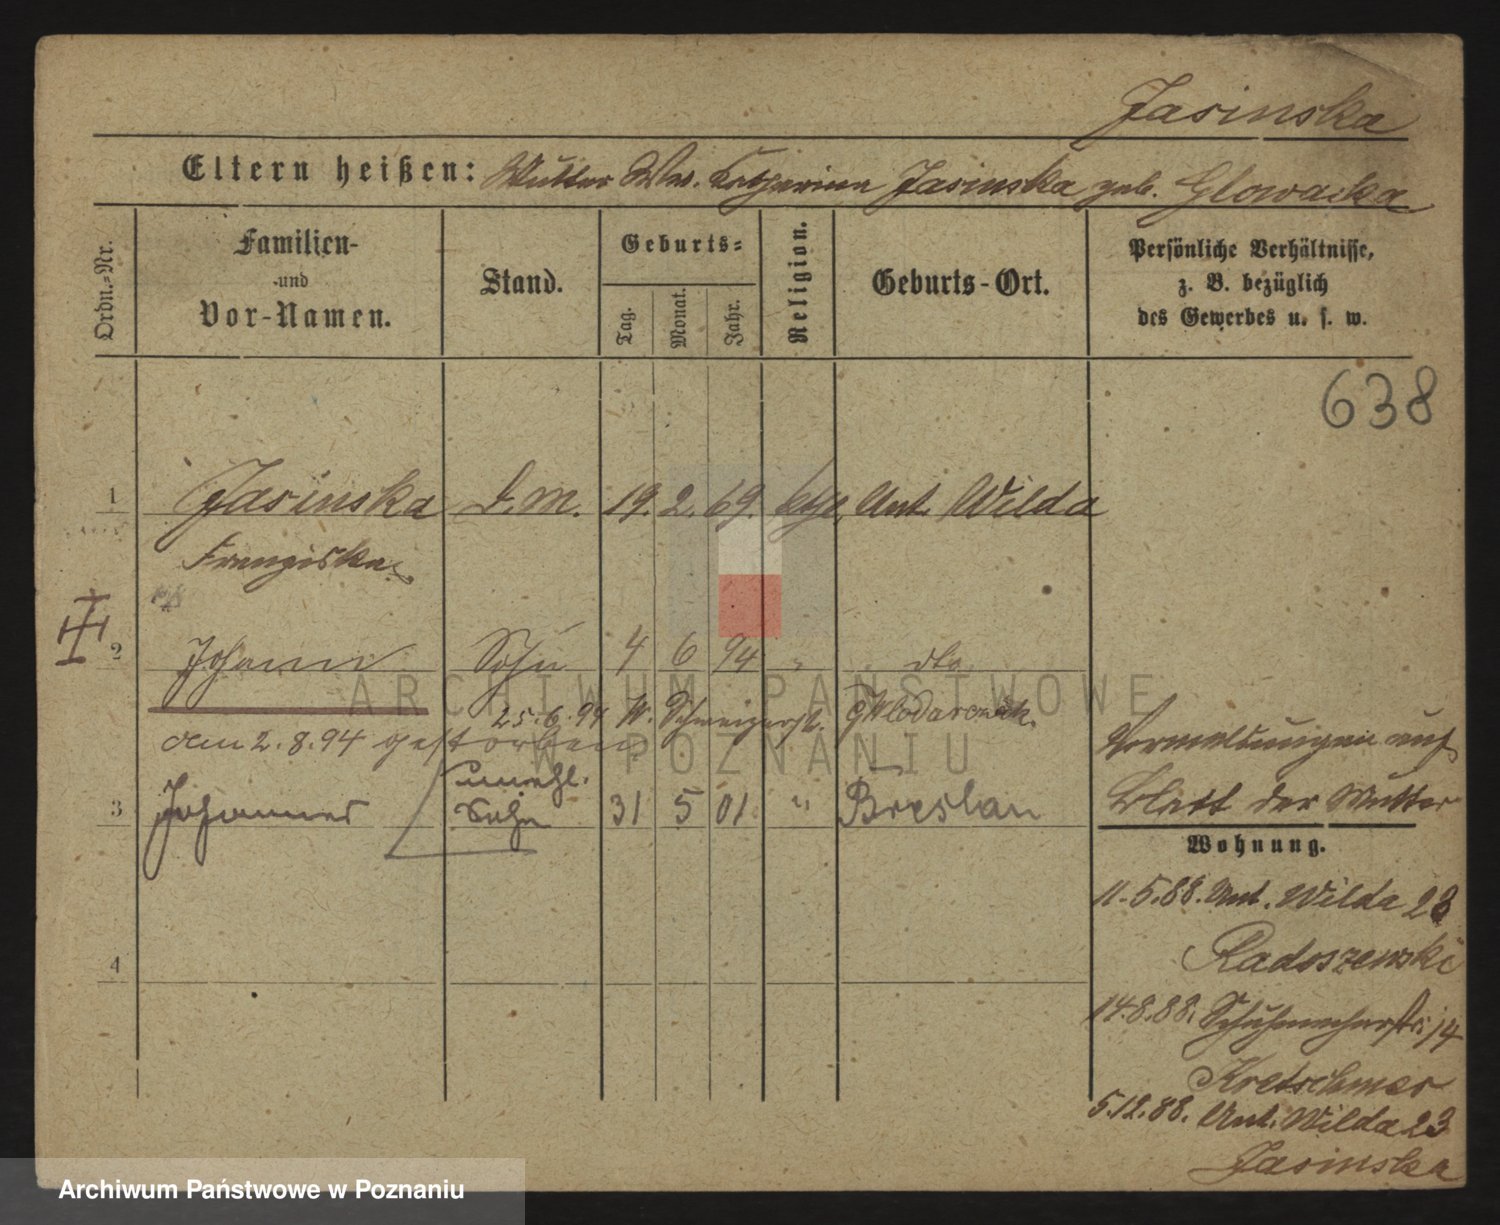 Jasinska
Eltern heißen: Mutter Ww. Katharina Jasinska geb. Glowacka
Ordn.-Nr.
Familien- und Vor-Namen.
Stand.
Geburts-
Tag.
Monat.
Jahr.
Religion.
Geburts-Ort.
Persönliche Verhältnisse,
z. B. bezüglich
des Gewerbes u. s. w.
638
1 Jasinska D.M. 19. 2. 69. kth. Unt. Wilda
Franziska
2 Johann Sohn 4 6 94 " dto
25.6.94 W. Schweizerstr. Wlodarczak
am 2.8.94 gestorben
unehl.
3 Johannes Sohn 31 5 01 " Breslau
4
Vermeldungen auf
Blatt der Mutter
Wohnung.
11.5.88. Unt. Wilda 23
Radoszewski
14.8.88. Schuhmacherstr. 14
Kretschmer
5.12.88. Unt. Wilda 23
Jasinska
ARCHIWUM PAŃSTWOWE
W POZNANIU
Archiwum Państwowe w Poznaniu